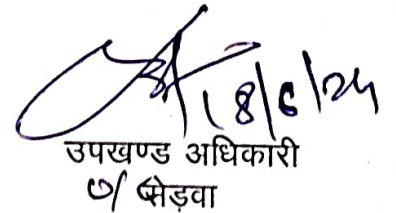 18/6/24
उपखण्ड अधिकारी
सेड़वा